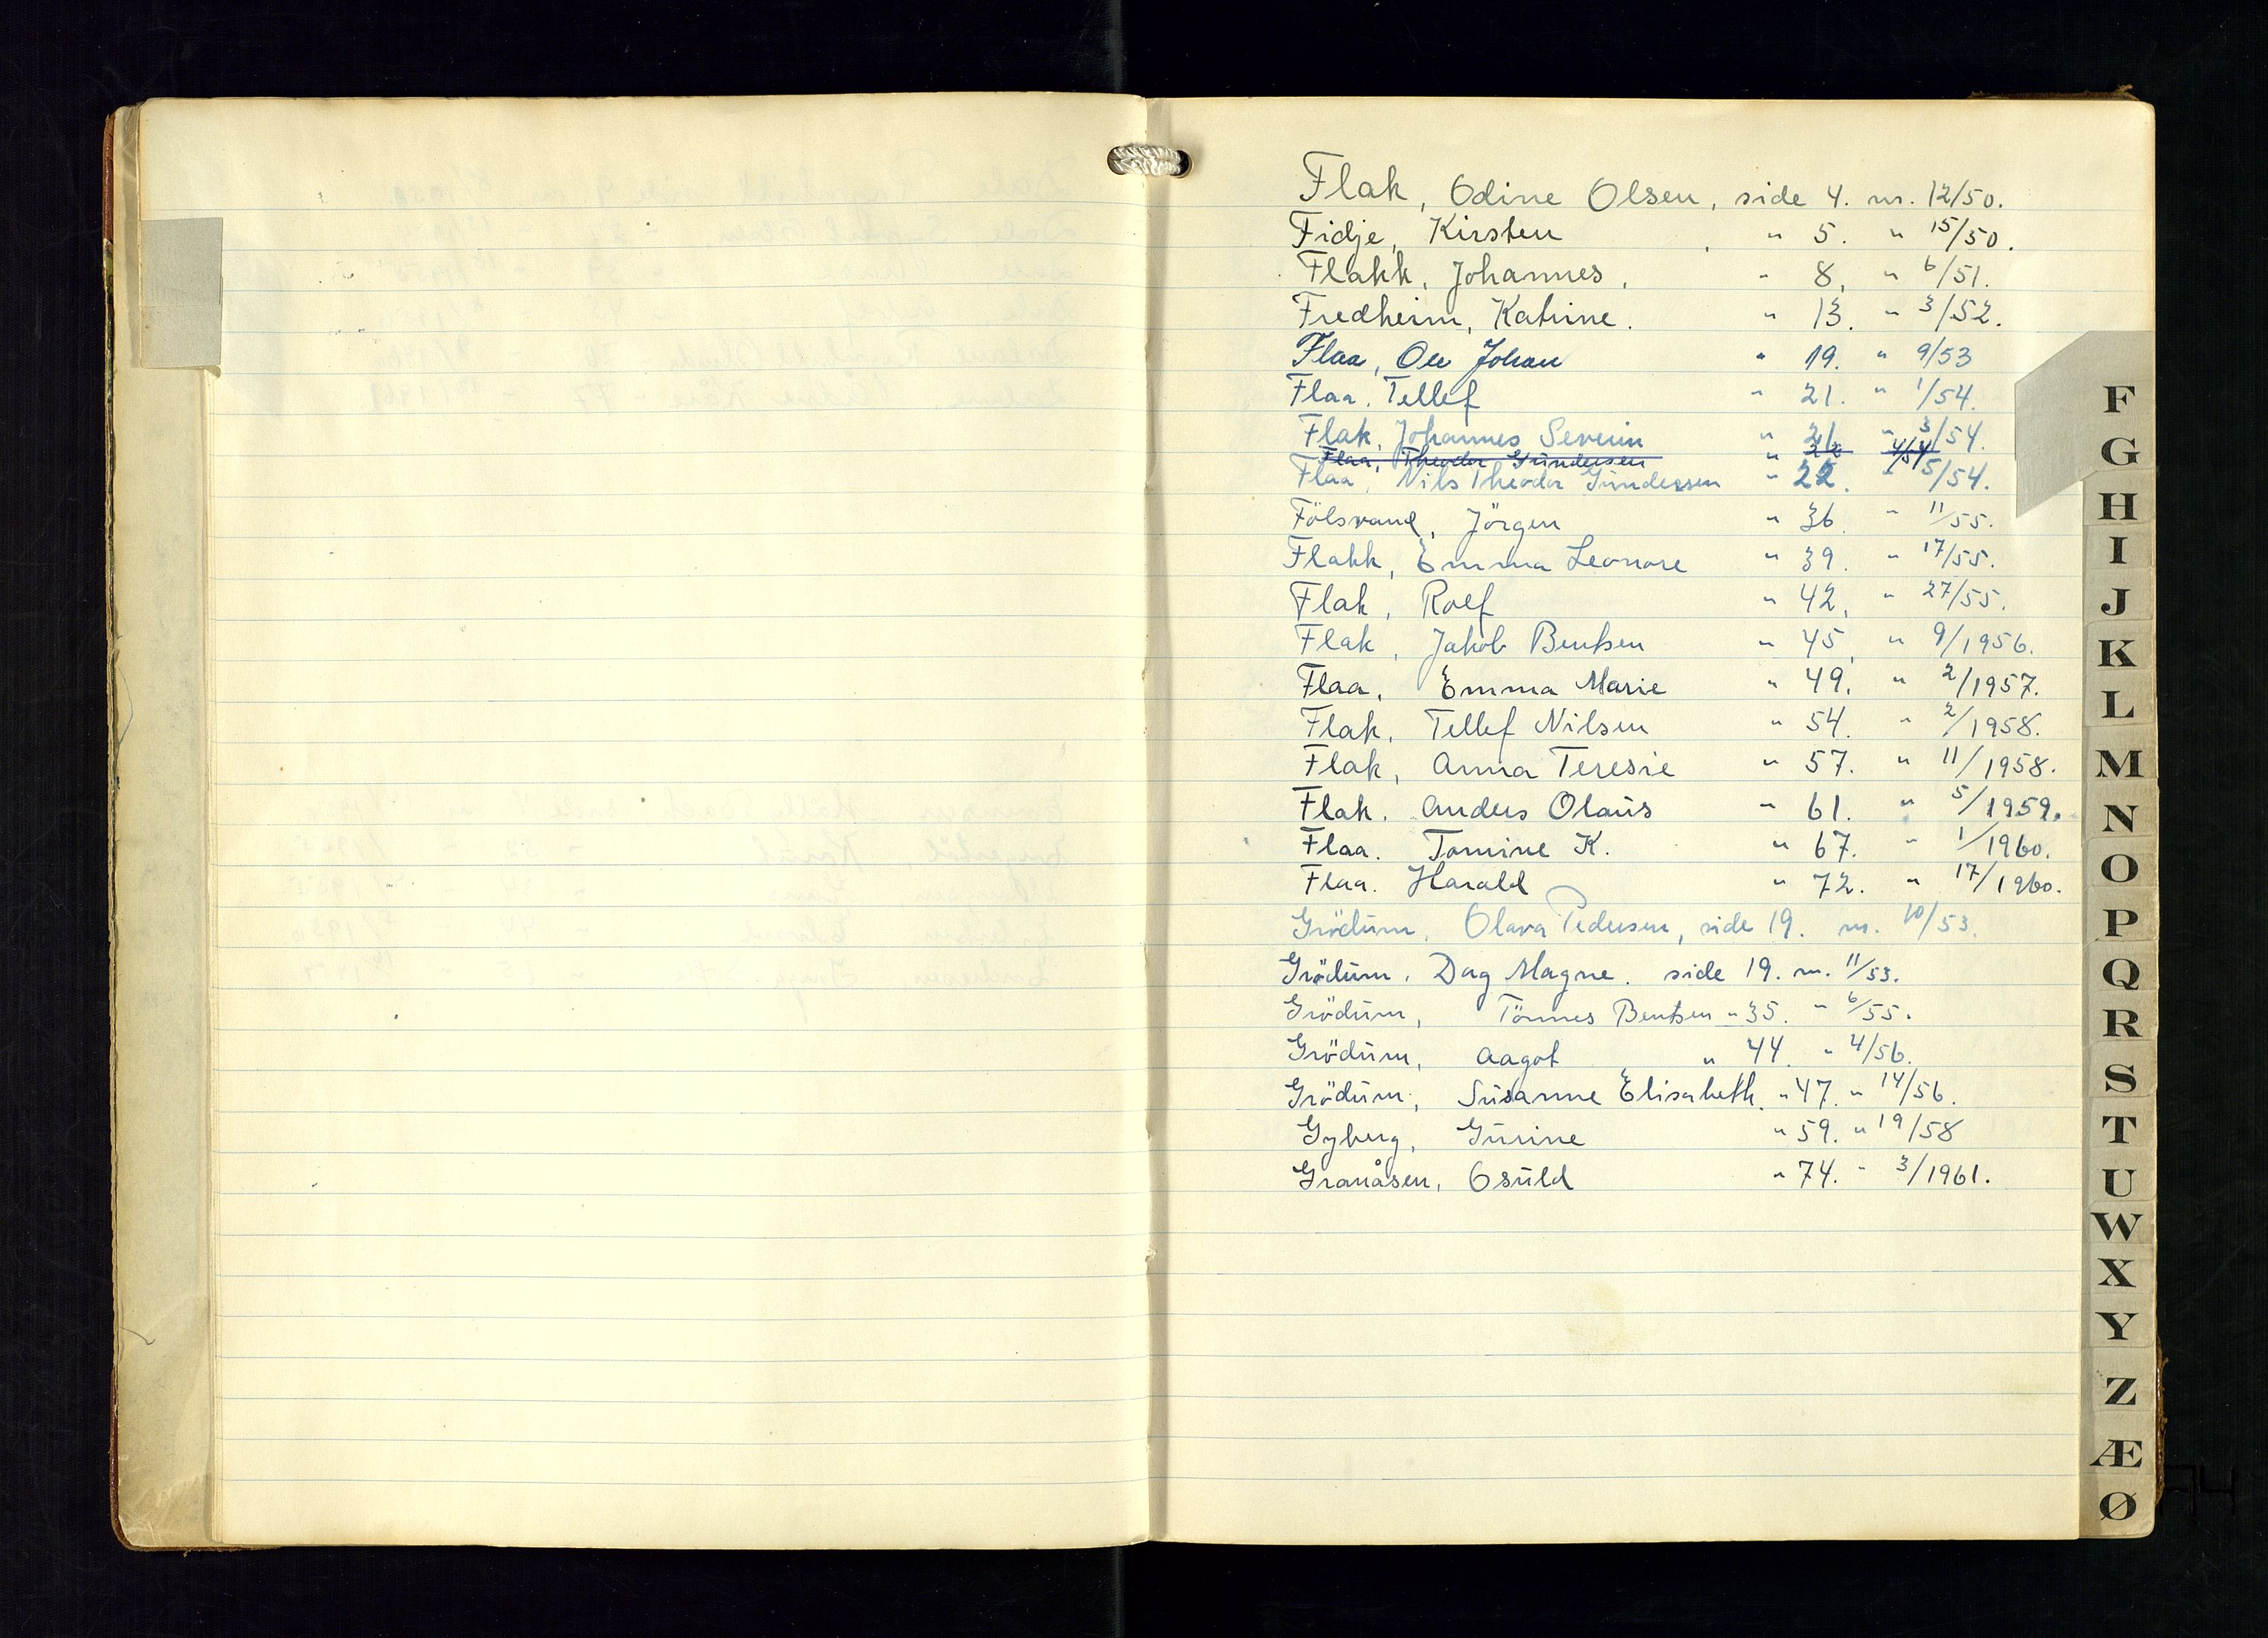 Flak, Odine Olsen, side 4. nr. 12/50.
Fidje, Kirsten " 5. " 15/50.
Flakk, Johannes, " 8, " 6/51.
Fredheim, Katrine. " 13. " 3/52.
Flaa, Ole Johan " 19. " 9/53
Flaa, Tellef " 21. " 1/54.
Flak, Johannes Severin " 21. " 3/54.
Flaa, Theodor Gundersen " 22 4/54
Flaa, Nils Theodor Gundersen " 22. " 5/54.
Fölsvand, Jörgen " 36 " 11/55.
Flakk, Emma Leonore " 39. " 17/55.
Flak, Rolf " 42, " 27/55.
Flak, Jakob Bentsen " 45, " 9/1956.
Flaa, Emma Marie " 49. " 2/1957.
Flak, Tellef Nilsen " 54. " 2/1958.
Flak, Anna Teresie " 57. " 11/1958.
Flak. Anders Olaus " 61. " 5/1959.
Flaa. Tomine K. " 67. " 1/1960.
Flaa. Harald " 72. " 17/1960.
Grödum, Olava Pedersen, side 19. nr. 10/53.
Grödum. Dag Magne. side 19. nr. 11/53.
Grödum, Tönnes Bentsen " 35. " 6/55.
Grödum, Aagot " 44. " 4/56.
Grödum, Susanne Elisabeth. " 47. " 14/56.
Gyberg, Gurine " 59. " 19/58
Granåsen, Osuld " 74. " 3/1961.
F
G
H
I
J
K
L
M
N
O
P
Q
R
S
T
U
W
X
Y
Z
Æ
Ø